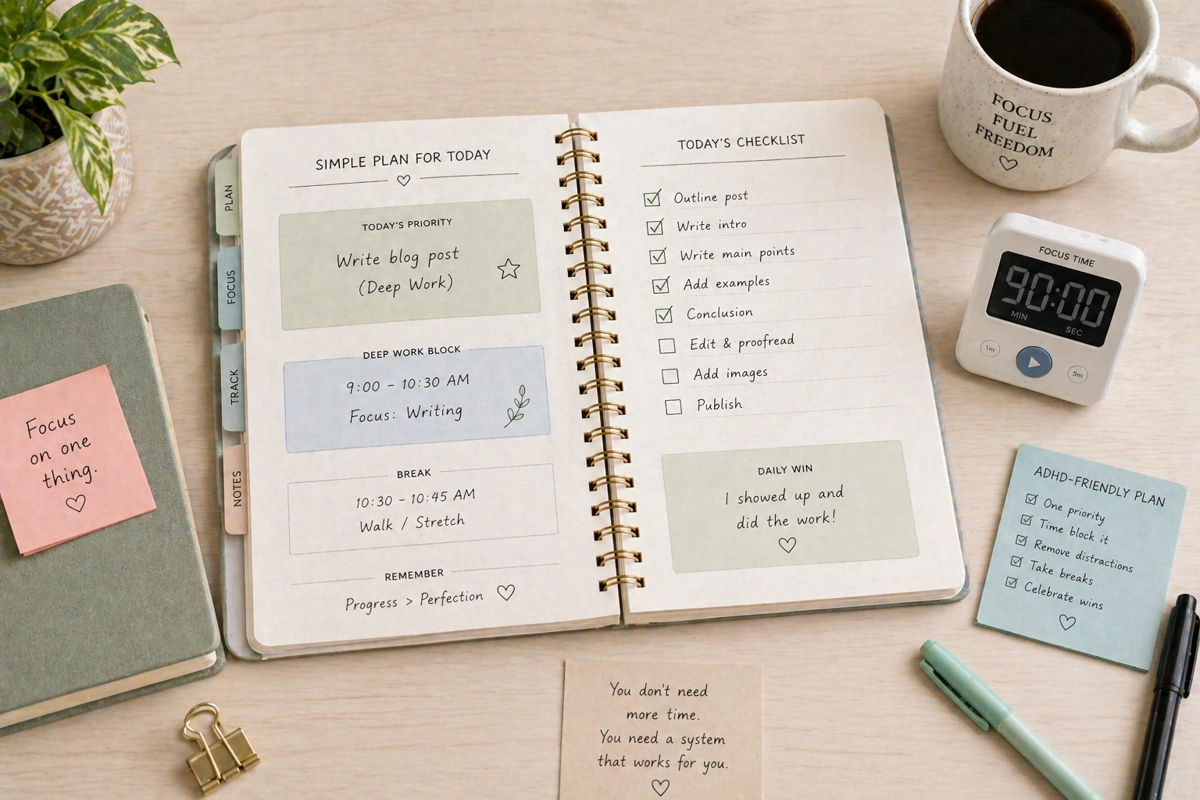 SIMPLE PLAN FOR TODAY
TODAY'S PRIORITY
Write blog post
(Deep Work)
DEEP WORK BLOCK
9:00 – 10:30 AM
Focus: Writing
BREAK
10:30 – 10:45 AM
Walk / Stretch
REMEMBER
Progress > Perfection
PLAN
FOCUS
TRACK
NOTES
TODAY'S CHECKLIST
Outline post
Write intro
Write main points
Add examples
Conclusion
Edit & proofread
Add images
Publish
DAILY WIN
I showed up and
did the work!
Focus
on one
thing.
FOCUS
FUEL
FREEDOM
FOCUS TIME
90:00
MIN SEC
1m
5m
ADHD-FRIENDLY PLAN
One priority
Time block it
Remove distractions
Take breaks
Celebrate wins
You don't need
more time.
You need a system
that works for you.